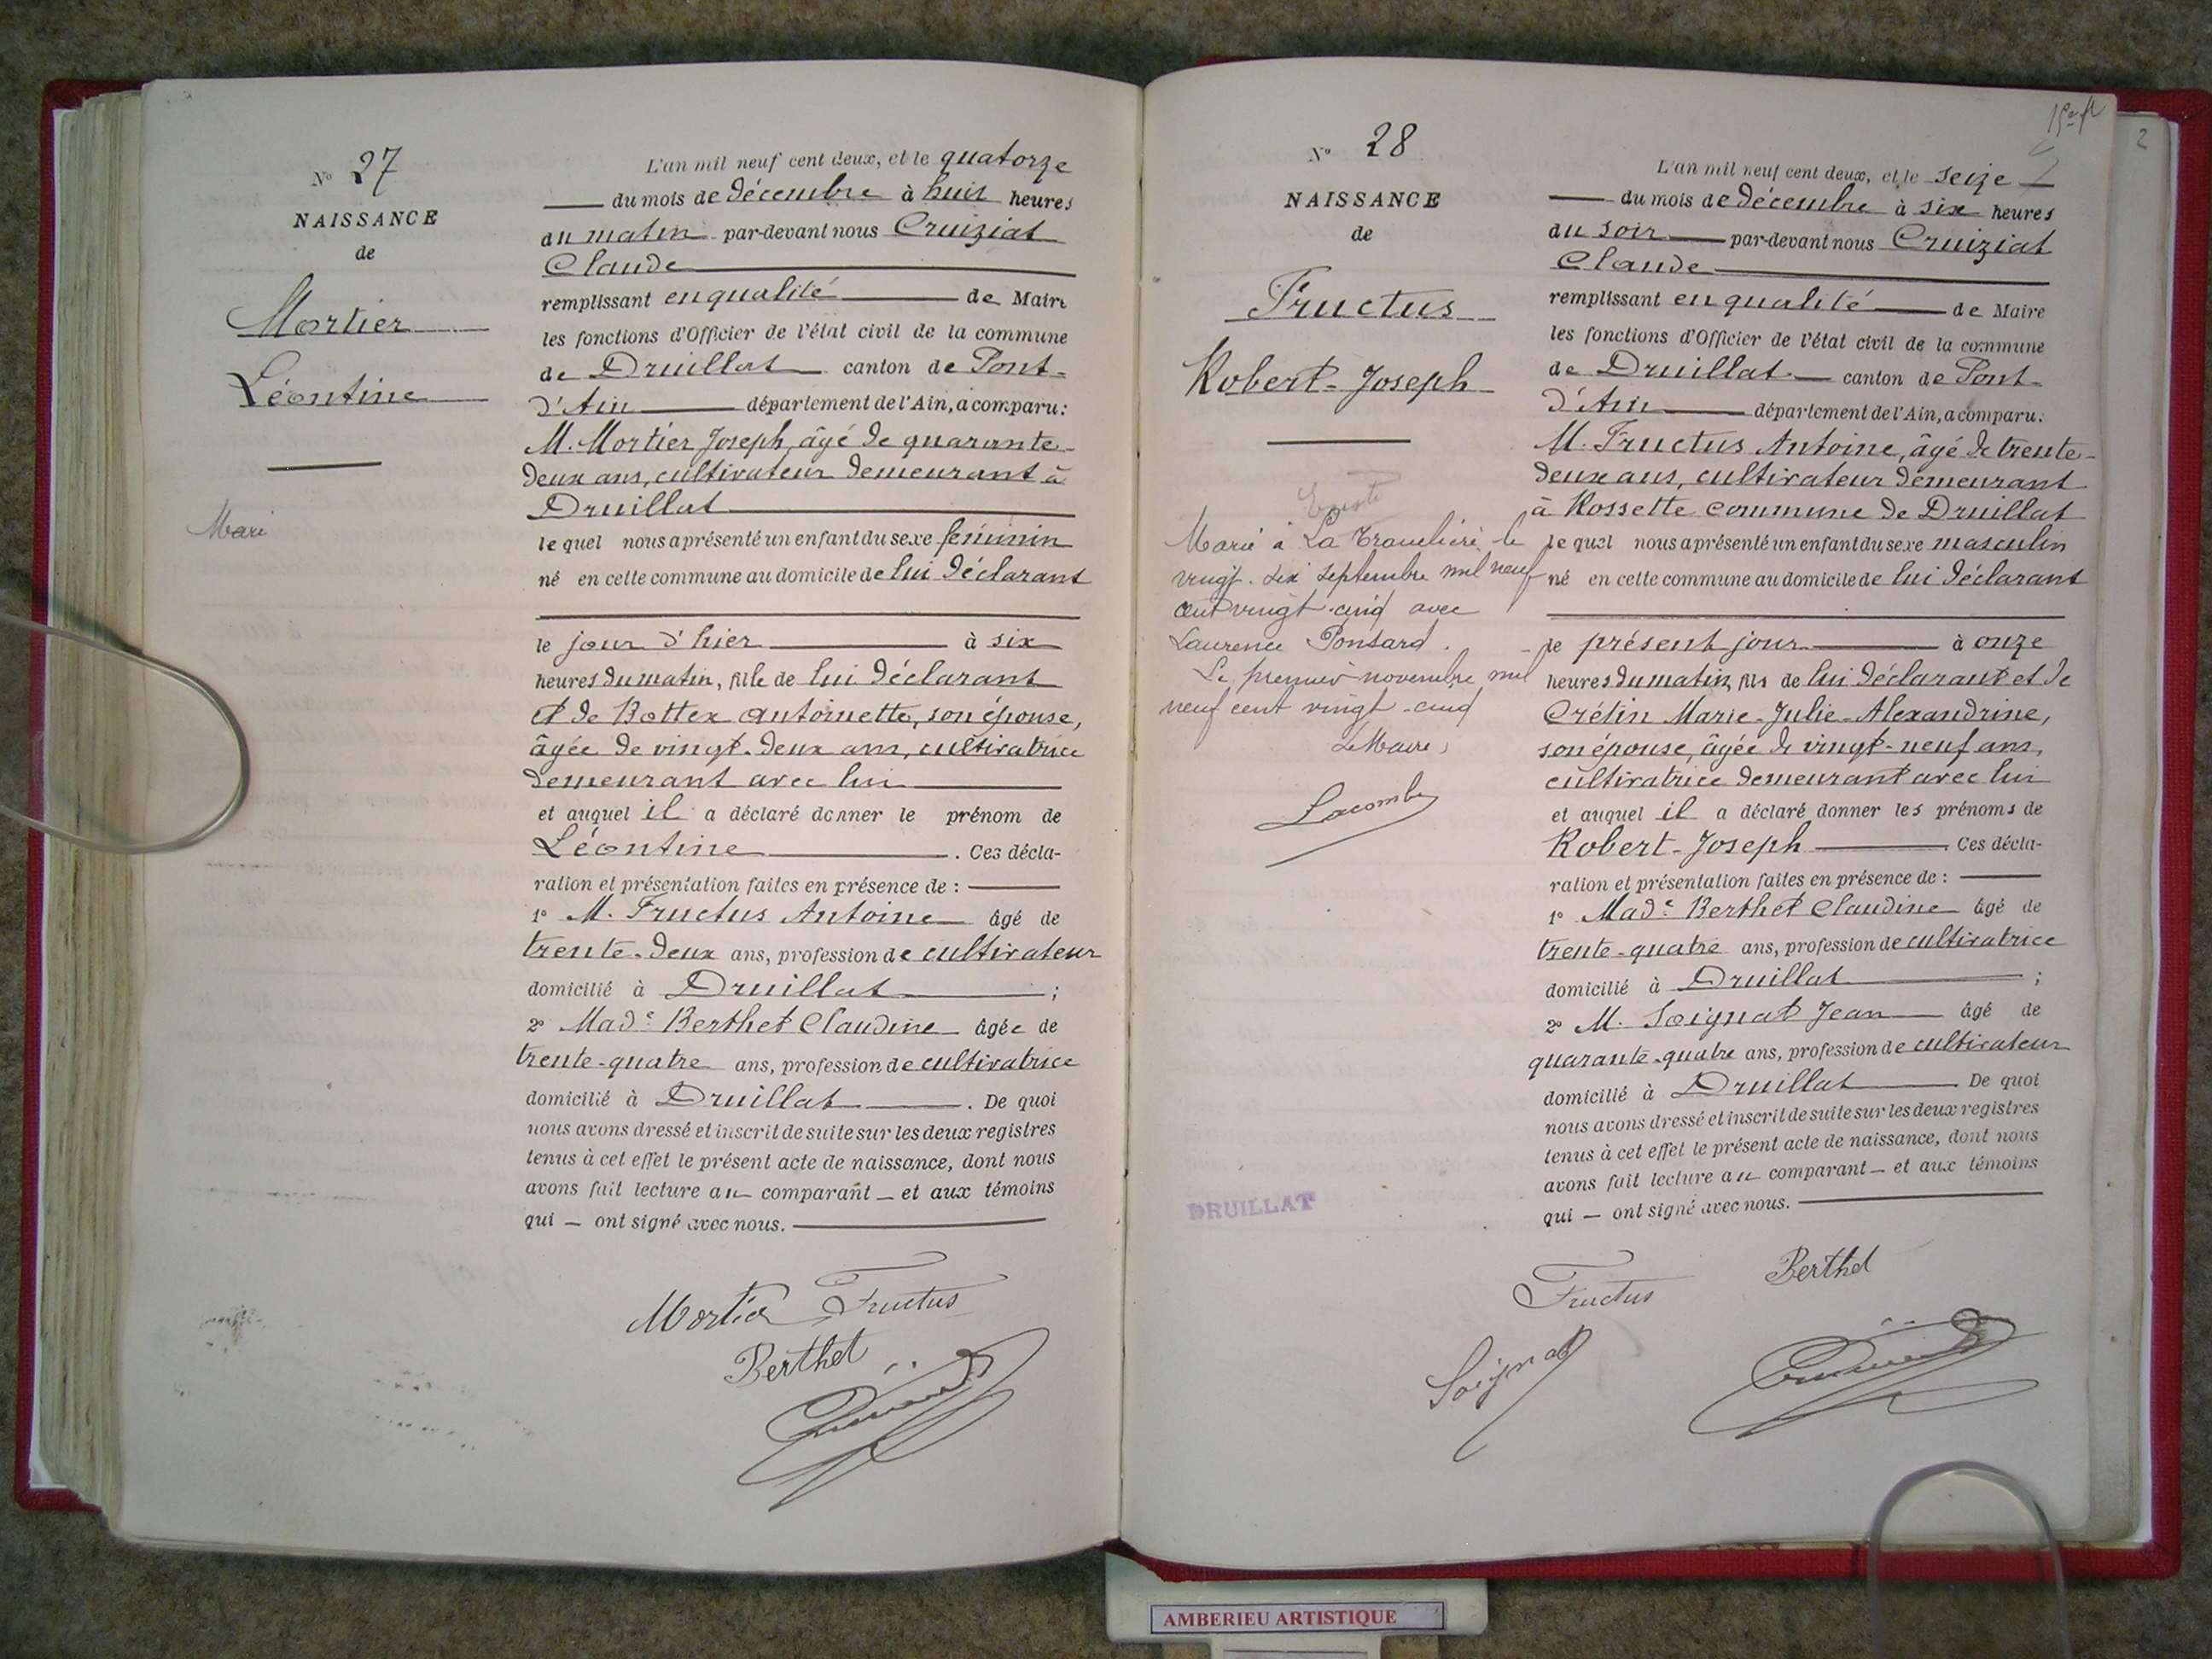 N° 27
NAISSANCE
de
Mortier
Léontine
Mari
L'an mil neuf cent deux, et le quatorze
du mois de décembre à huit heures
du matin par-devant nous Cruiziat
Claude
remplissant en qualité de Maire
les fonctions d'Officier de l'état civil de la commune
de Druillat canton de Pont-
d'Ain département de l'Ain, a comparu:
M. Mortier Joseph, âgé de quarante-
deux ans, cultivateur demeurant à
Druillat
lequel nous a présenté un enfant du sexe féminin
né en cette commune au domicile de lui déclarant
le jour d'hier à six
heures du matin, fille de lui déclarant
et de Bottex Antoinette, son épouse,
âgée de vingt-deux ans, cultivatrice
demeurant avec lui
et auquel il a déclaré donner le prénom de
Léontine. Ces décla-
ration et présentation faites en présence de :
1° M. Fructus Antoine âgé de
trente-deux ans, profession de cultivateur
domicilié à Druillat ;
2° Made Berthet Claudine âgée de
trente-quatre ans, profession de cultivatrice
domicilié à Druillat. De quoi
nous avons dressé et inscrit de suite sur les deux registres
tenus à cet effet le présent acte de naissance, dont nous
avons fait lecture au comparant — et aux témoins
qui — ont signé avec nous.
Mortier Fructus
Berthet
N° 28
NAISSANCE
de
Fructus
Robert-Joseph
Marié à La Tranclière le
vingt-six septembre mil neuf
cent vingt-cinq avec
Laurence Ponsard.
Le premier novembre mil
neuf cent vingt-cinq
Le Maire,
Lacombe
DRUILLAT
2
L'an mil neuf cent deux, et le seize
du mois de décembre à six heures
du soir par-devant nous Cruiziat
Claude
remplissant en qualité de Maire
les fonctions d'Officier de l'état civil de la commune
de Druillat canton de Pont-
d'Ain département de l'Ain, a comparu:
M. Fructus Antoine, âgé de trente-
deux ans, cultivateur demeurant
à Rossette commune de Druillat
lequel nous a présenté un enfant du sexe masculin
né en cette commune au domicile de lui déclarant
le présent jour à onze
heures du matin, fils de lui déclarant et de
Crétin Marie-Julie-Alexandrine,
son épouse, âgée de vingt-neuf ans,
cultivatrice demeurant avec lui
et auquel il a déclaré donner les prénoms de
Robert-Joseph. Ces décla-
ration et présentation faites en présence de :
1° Made Berthet Claudine âgé de
trente-quatre ans, profession de cultivatrice
domicilié à Druillat ;
2° M. Soignat Jean âgé de
quarante-quatre ans, profession de cultivateur
domicilié à Druillat. De quoi
nous avons dressé et inscrit de suite sur les deux registres
tenus à cet effet le présent acte de naissance, dont nous
avons fait lecture au comparant — et aux témoins
qui — ont signé avec nous.
Fructus Berthet
Soignat
AMBERIEU ARTISTIQUE